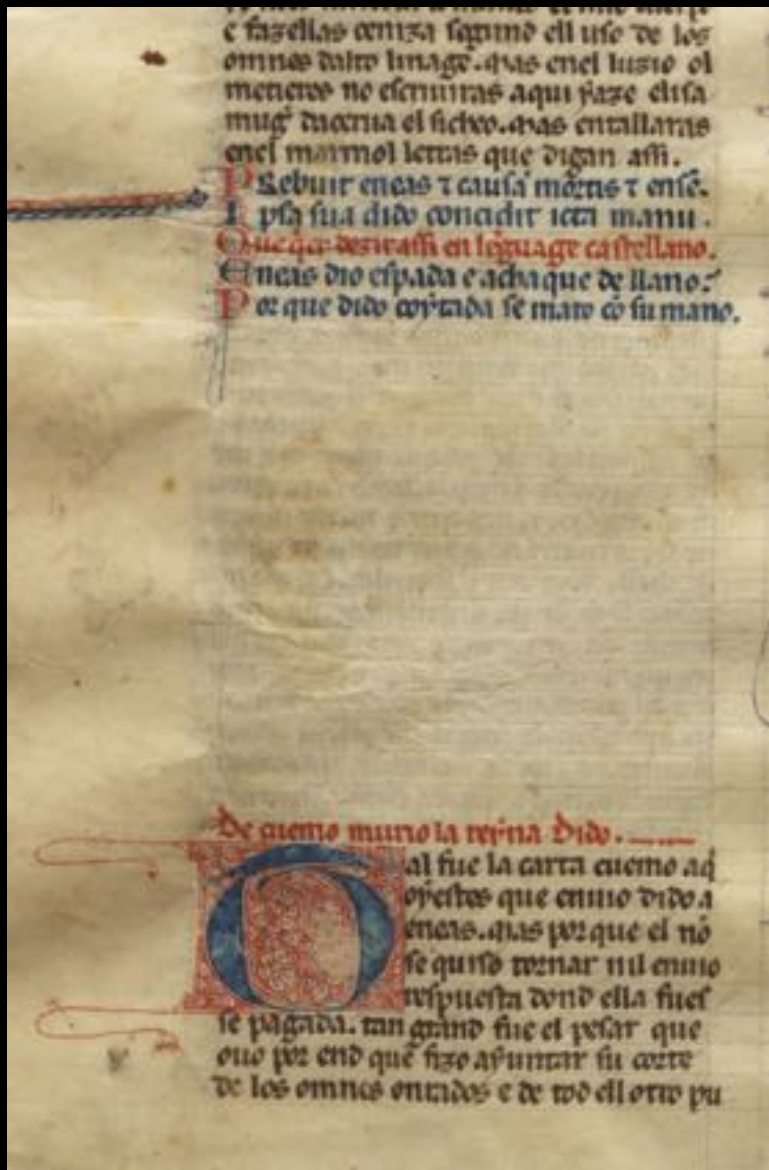 e fazellas ceniza segund ell uso de los
omnes dalto linage. mas enel luzio ol
meticros no escriuiras aqui yaze elisa
mug̃ dacerua el sicheo. mas entallaras
enel marmol lettras que digan assi.
Prebuit eneas ⁊ causã mortis ⁊ ensẽ.
Ipsa sua dido concidit icta manu.
Que q̃er dezir assi en lẽguage castellano.
Eneas dio espada e achaque de llano.
Por que dido coytada se mato cõ su mano.
De cuemo murio la reyna Dido.
Tal fue la carta cuemo aq̃
oyestes que enuio dido a
eneas. mas por que el nõ
se quiso tornar nil enuio
respuesta dond ella fues
se pagada. tan grand fue el pesar que
ouo por end que fizo ayuntar su corte
de los omnes onrados e de tod ell otro pu